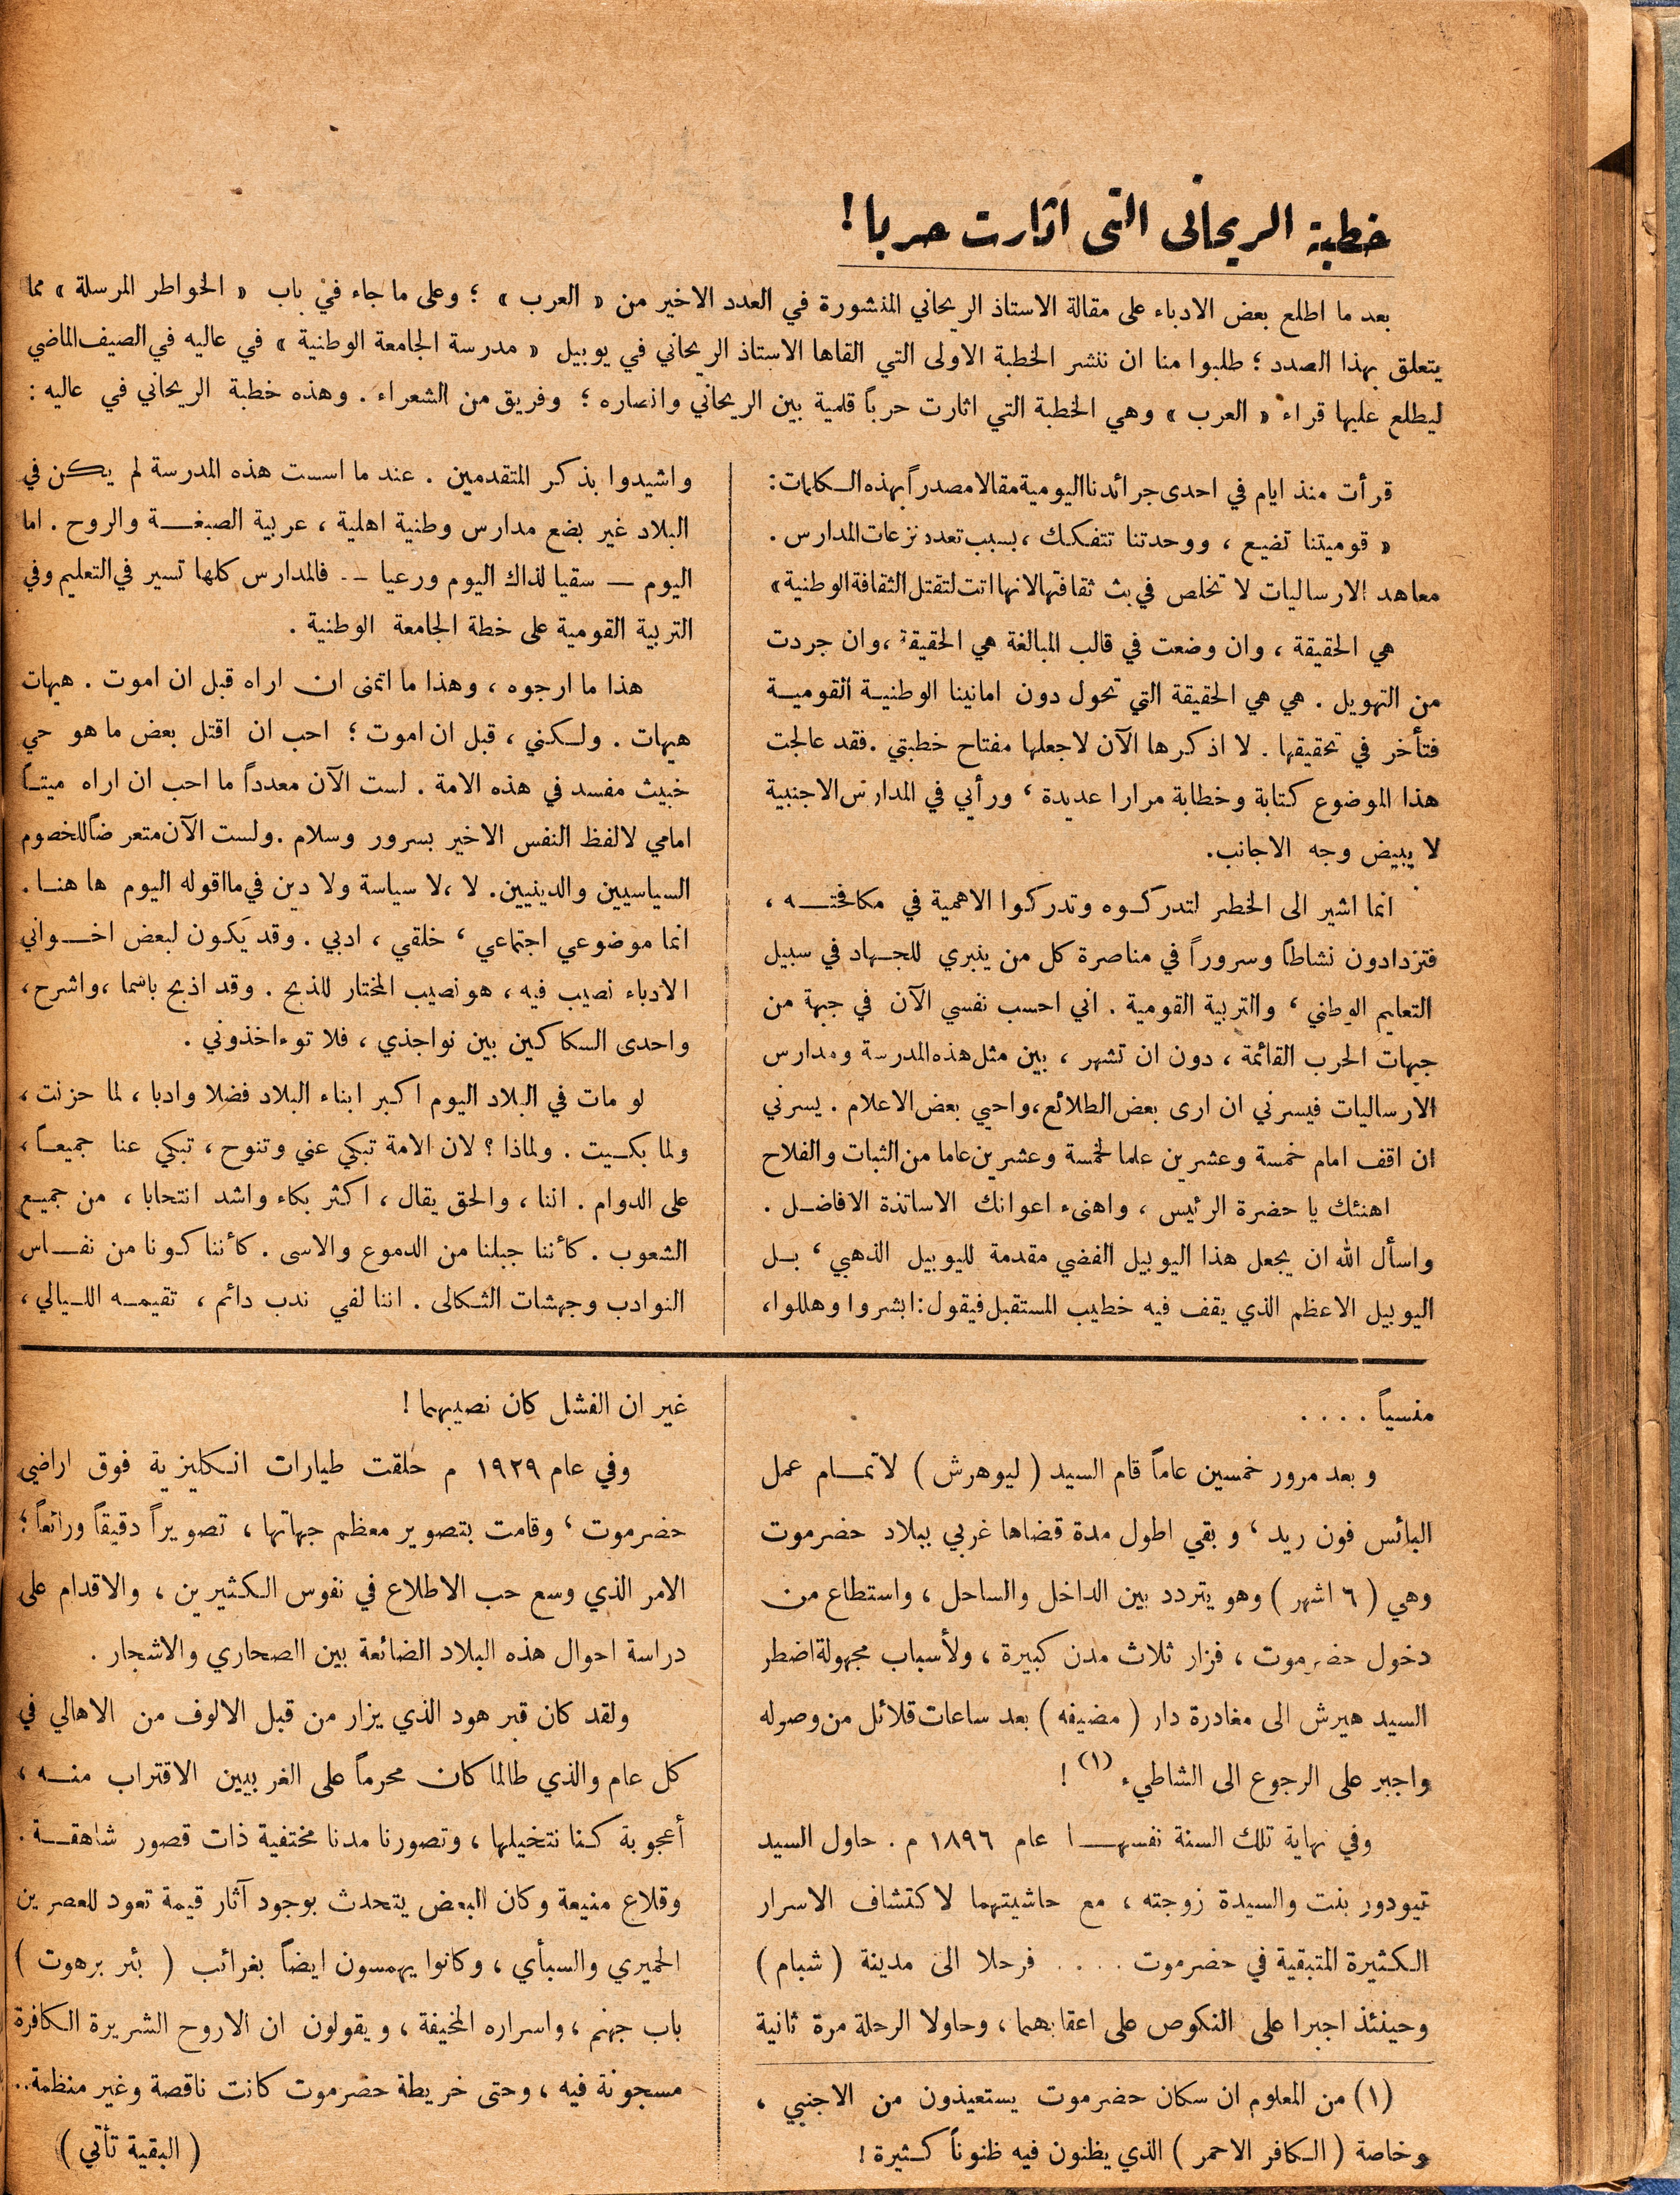 خطبة الريحاني التي اثارت حربا !
بعد ما اطلع بعض الادباء على مقالة الاستاذ الريحاني المنشورة في العدد الاخير من « العرب » ؛ وعلى ما جاء في باب « الخواطر المرسلة » مما
يتعلق بهذا الصدد ؛ طلبوا منا ان ننشر الخطبة الاولى التي القاها الاستاذ الريحاني في يوبيل « مدرسة الجامعة الوطنية » في عاليه في الصيف الماضي
ليطلع عليها قراء « العرب » وهي الخطبة التي اثارت حرباً قلمية بين الريحاني وانصاره ؛ وفريق من الشعراء . وهذه خطبة الريحاني في عاليه :
قرأت منذ ايام في احدى جرائدنا اليومية مقالا مصدراً بهذه الكلمات :
« قوميتنا تضيع ، ووحدتنا تتفكك ، بسبب تعدد نزعات المدارس .
معاهد الارساليات لا تخلص في بث ثقافتها لانها اتت لتقتل الثقافة الوطنية »
هي الحقيقة ، وان وضعت في قالب المبالغة هي الحقيقة ، وان جردت
من التهويل . هي هي الحقيقة التي تحول دون امانينا الوطنية القومية
فتأخر في تحقيقها . لا اذكرها الآن لاجعلها مفتاح خطبتي . فقد عالجت
هذا الموضوع كتابة وخطابة مرارا عديدة ، ورأيي في المدارس الاجنبية
لا يبيض وجه الاجانب .
انما اشير الى الخطر لتدركوه وتدركوا الاهمية في مكافحته ،
فتزدادون نشاطاً وسروراً في مناصرة كل من ينبري للجهاد في سبيل
التعليم الوطني ، والتربية القومية . اني احسب نفسي الآن في جبهة من
جبهات الحرب القائمة ، دون ان تشهر ، بين مثل هذه المدرسة ومدارس
الارساليات فيسرني ان ارى بعض الطلائع ، واحيي بعض الاعلام . يسرني
ان اقف امام خمسة وعشرين علما لخمسة وعشرين عاما من الثبات والفلاح
اهنئك يا حضرة الرئيس ، واهنىء اعوانك الاساتذة الافاضل .
واسأل الله ان يجعل هذا اليوبيل الفضي مقدمة لليوبيل الذهبي ، بل
اليوبيل الاعظم الذي يقف فيه خطيب المستقبل فيقول : ابشروا وهللوا ،
واشيدوا بذكر المتقدمين . عند ما اسست هذه المدرسة لم يكن في
البلاد غير بضع مدارس وطنية اهلية ، عربية الصبغة والروح . اما
اليوم — سقيا لذاك اليوم ورعيا — . فالمدارس كلها تسير في التعليم وفي
التربية القومية على خطة الجامعة الوطنية .
هذا ما ارجوه ، وهذا ما اتمنى ان اراه قبل ان اموت . هيهات
هيهات . ولكنني ، قبل ان اموت ؛ احب ان اقتل بعض ما هو حي
خبيث مفسد في هذه الامة . لست الآن معدداً ما احب ان اراه ميتاً
امامي لالفظ النفس الاخير بسرور وسلام . ولست الآن متعرضاً للخصوم
السياسيين والدينيين . لا ، لا سياسة ولا دين في ما اقوله اليوم ها هنا .
انما موضوعي اجتماعي ، خلقي ، ادبي . وقد يكون لبعض اخواني
الادباء نصيب فيه ، هو نصيب المختار للذبح . وقد اذبح باسما ، واشرح ،
واحدى السكاكين بين نواجذي ، فلا توءاخذوني .
لو مات في البلاد اليوم اكبر ابناء البلاد فضلا وادبا ، لما حزنت ،
ولما بكيت . ولماذا ؟ لان الامة تبكي عني وتنوح ، تبكي عنا جميعاً ،
على الدوام . اننا ، والحق يقال ، اكثر بكاء واشد انتحابا ، من جميع
الشعوب . كأننا جبلنا من الدموع والاسى . كأننا كونا من نفاس
النوادب وجهشات الثكالى . اننا لفي ندب دائم ، تقيمه الليالي ،
منسياً . . . .
وبعد مرور خمسين عاماً قام السيد ( ليوهرش ) لاتمام عمل
البائس فون ريد ، وبقي اطول مدة قضاها غربي ببلاد حضرموت
وهي ( ٦ اشهر ) وهو يتردد بين الداخل والساحل ، واستطاع من
دخول حضرموت ، فزار ثلاث مدن كبيرة ، ولأسباب مجهولة اضطر
السيد هيرش الى مغادرة دار ( مضيفه ) بعد ساعات قلائل من وصوله
واجبر على الرجوع الى الشاطيء (١) !
وفي نهاية تلك السنة نفسها عام ١٨٩٦ م . حاول السيد
تيودور بنت والسيدة زوجته ، مع حاشيتهما لاكتشاف الاسرار
الكثيرة المتبقية في حضرموت . . . . فرحلا الى مدينة ( شبام )
وحينئذ اجبرا على النكوص على اعقابهما ، وحاولا الرحلة مرة ثانية
(١) من المعلوم ان سكان حضرموت يستعيذون من الاجنبي ،
وخاصة ( الكافر الاحمر ) الذي يظنون فيه ظنوناً كثيرة !
غير ان الفشل كان نصيبهما !
وفي عام ١٩٢٩ م حلقت طيارات انكليزية فوق اراضي
حضرموت ، وقامت بتصوير معظم جهاتها ، تصويراً دقيقاً ورائعاً ؛
الامر الذي وسع حب الاطلاع في نفوس الكثيرين ، والاقدام على
دراسة احوال هذه البلاد الضائعة بين الصحاري والاشجار .
ولقد كان قبر هود الذي يزار من قبل الالوف من الاهالي في
كل عام والذي طالما كان محرماً على الغربيين الاقتراب منه ،
أعجوبة كنا نتخيلها ، وتصورنا مدنا مختفية ذات قصور شاهقة .
وقلاع منيعة وكان البعض يتحدث بوجود آثار قيمة تعود للعصرين
الحميري والسبأي ، وكانوا يهمسون ايضاً بغرائب ( بئر برهوت )
باب جهنم ، واسراره المخيفة ، ويقولون ان الاروح الشريرة الكافرة
مسجونة فيه ، وحتى خريطة حضرموت كانت ناقصة وغير منظمة . .
( البقية تأتي )